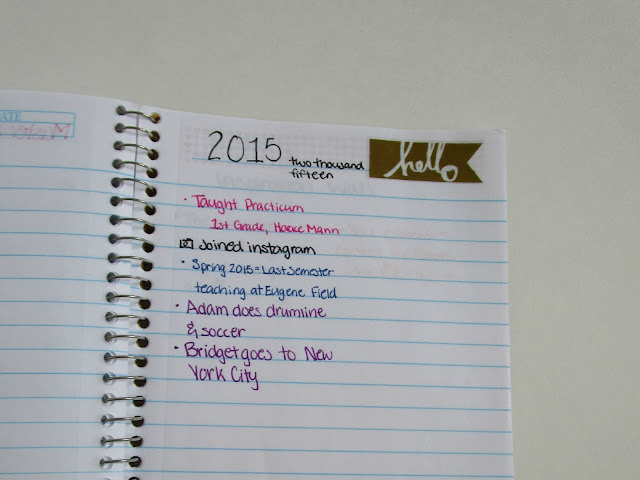 ATE
2015 two thousand
fifteen
hello
· Taught Practicum
1st Grade, Horace Mann
Joined instagram
· Spring 2015 = Last Semester
teaching at Eugene Field
· Adam does drumline
& soccer
· Bridget goes to New
York City